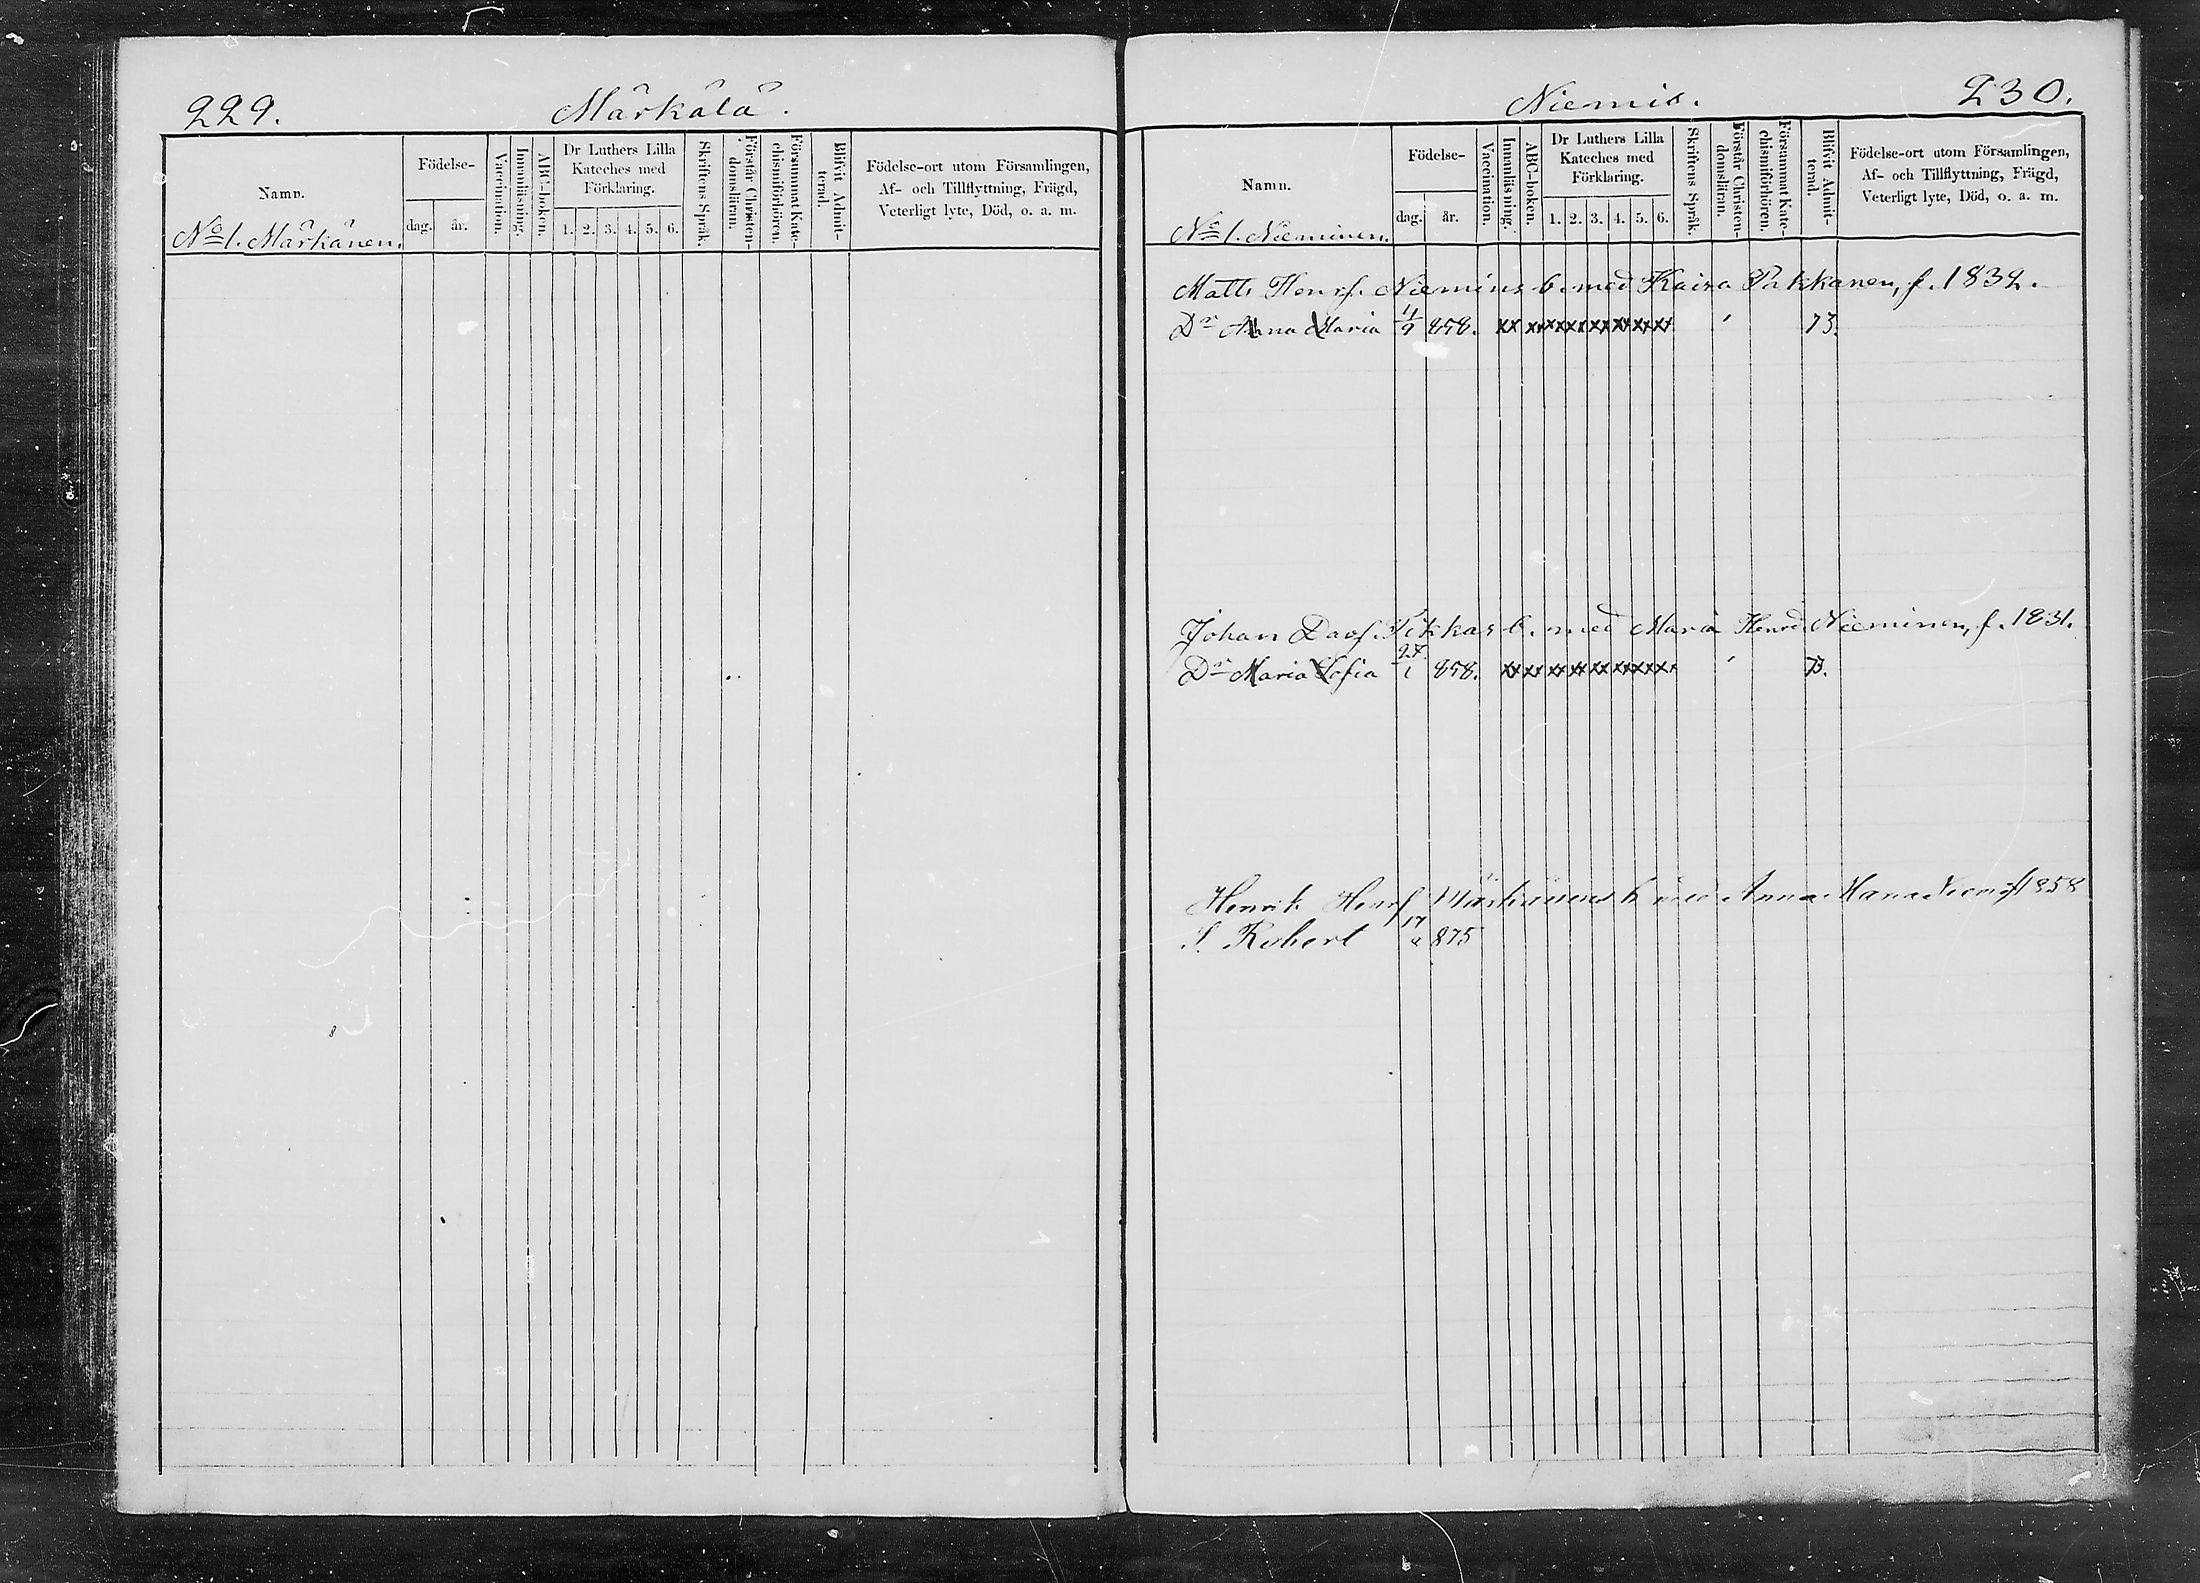 229.
Märkälä.
Namn.
Födelse-
dag.
år.
Vaccination.
Innanläsning.
ABC-boken.
Dr Luthers Lilla
Kateches med
Förklaring.
1. 2. 3. 4. 5. 6.
Skriftens Språk.
Förstår Christen-
domsläran.
Försummat Kate-
chismiförhören.
Blifvit Admit-
terad.
Födelse-ort utom Församlingen,
Af- och Tillflyttning, Frägd,
Veterligt lyte, Död, o. a. m.
No 1. Märkänen.
Niemis.
230.
Namn.
Födelse-
dag.
år.
Vaccination.
Innanläsning.
ABC-boken.
Dr Luthers Lilla
Kateches med
Förklaring.
1. 2. 3. 4. 5. 6.
Skriftens Språk.
Förstår Christen-
domsläran.
Försummat Kate-
chismiförhören.
Blifvit Admit-
terad.
Födelse-ort utom Församlingen,
Af- och Tillflyttning, Frägd,
Veterligt lyte, Död, o. a. m.
No 1. Nieminen.
Matts Henrf. Niemins b. med Kaisa Pukkanen, f. 1832.
Dr Anna Maria 4/9 858. xx xx xx xx xx xx xx xx ' 73.
Johan Daf. Pikkas b. med Maria Henrd. Nieminen, f. 1831.
Dr Maria Sofia 24/1 858. xx xx xx xx xx xx xx xx ' 73.
Henrik Henrf Märkänens b med Anna Maria 1858
S. Robert 17 875